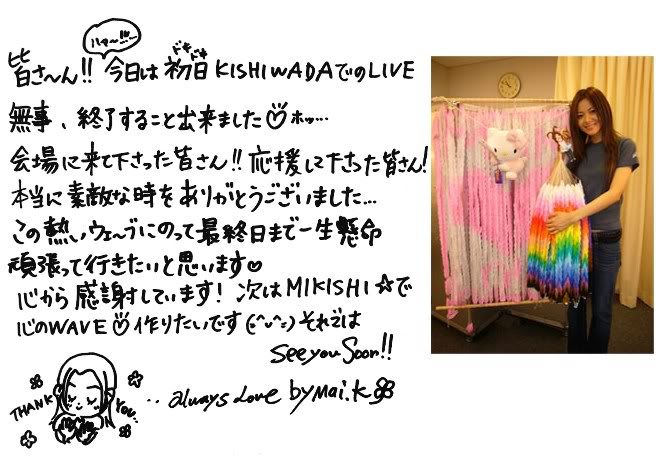 ハァー!!!...
ドキドキ
皆さ〜ん!! 今日は初日KISHIWADAでのLIVE
無事、終了すること出来ました♡ホッ...
会場に来て下さった皆さん!! 応援して下さった皆さん!
本当に素敵な時をありがとうございました...
この熱いウェーブにのって最終日まで一生懸命
頑張って行きたいと思います♡
心から感謝しています! 次はMIKISHI☆で
心のWAVE♡作りたいです(^-^) それでは
see you soon!!
THANK YOU...
..always Love by Mai.K